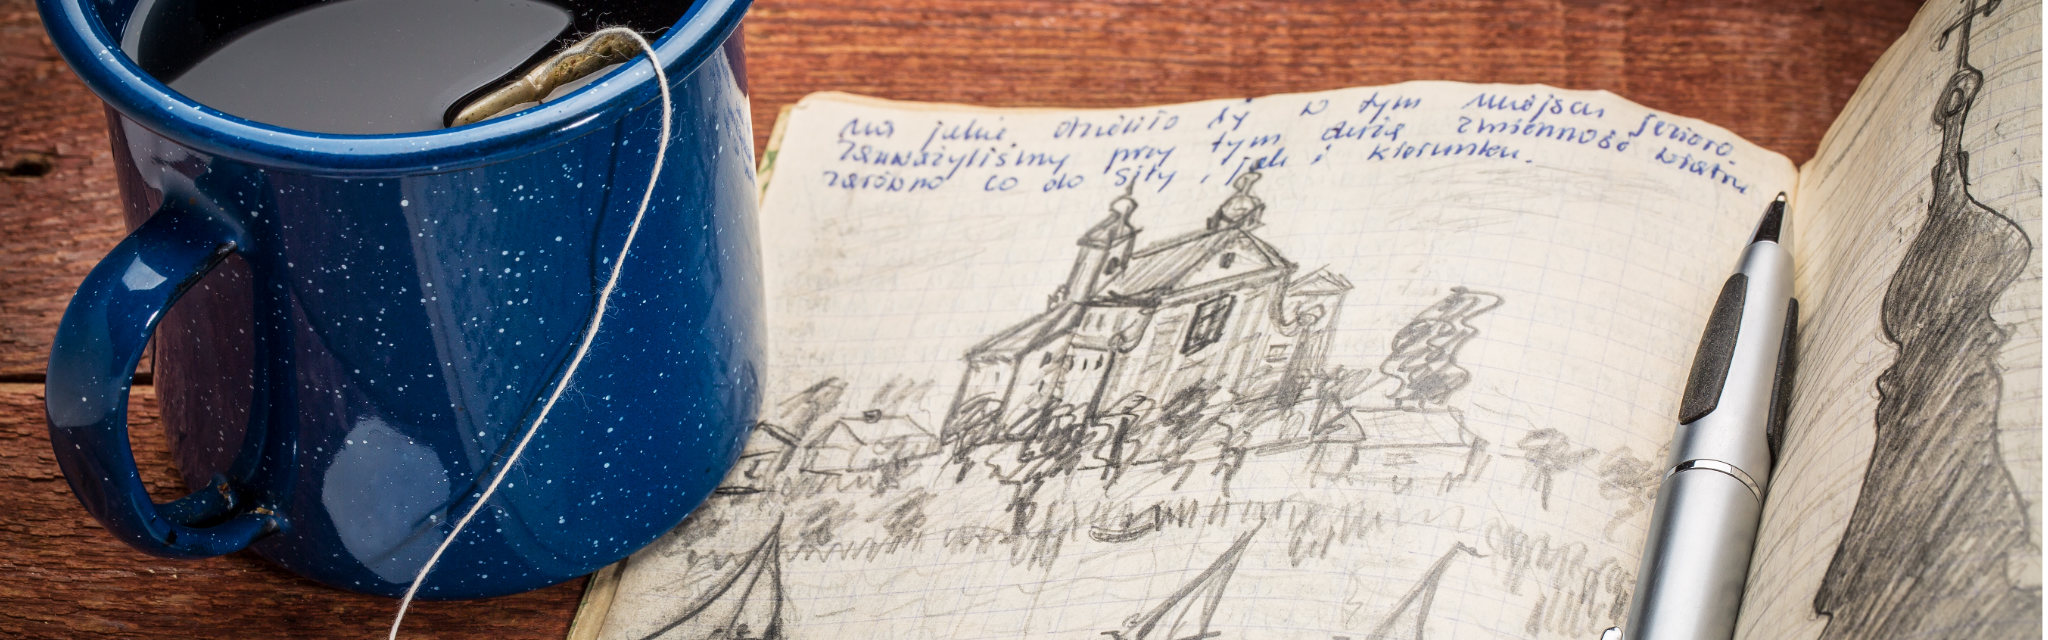 na jakie, obniżiło się w tym miejscu jezioro.
Zauważyliśmy przy tym dużą zmienność wiatru
zarówno co do siły, jak i kierunku.